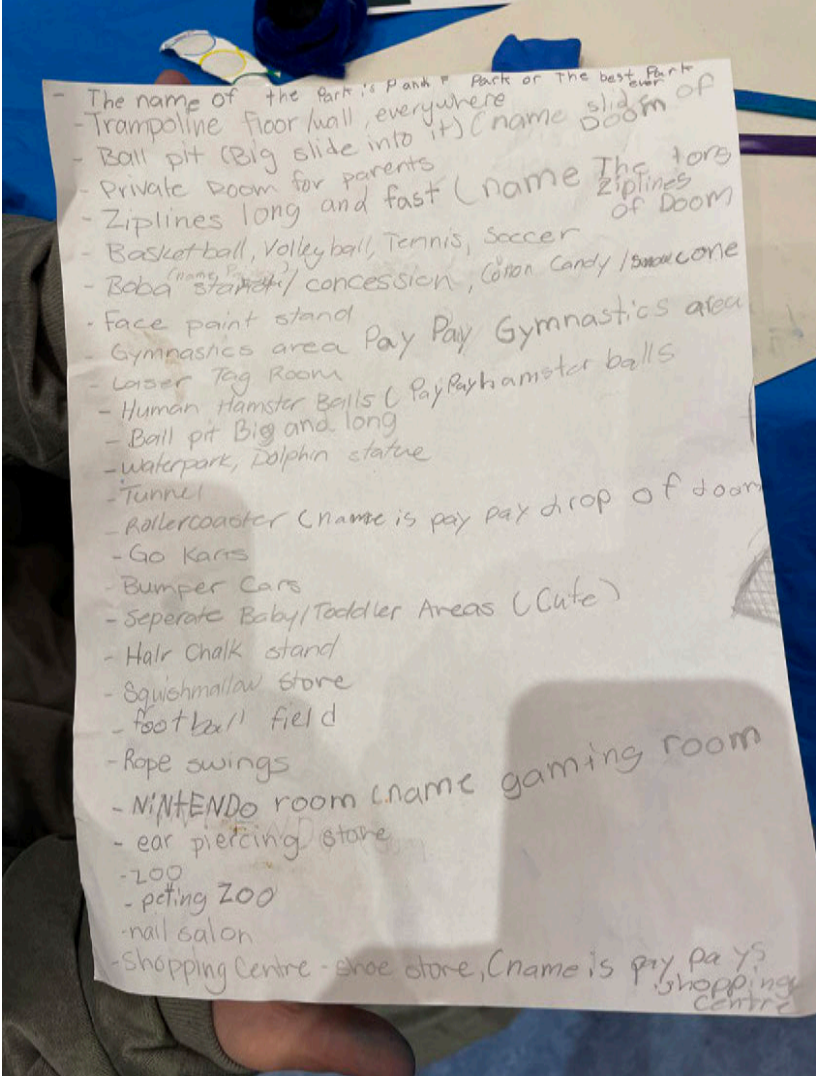 - The name of the Park is Pank " Park or The best Park ever
- Trampoline floor/wall, everywhere
- Ball pit (Big slide into it) (name slide of Doom
- Private Doom for parents
- Ziplines long and fast (name The tors Ziplines of Doom
- Basketball, Volleyball, Tennis, Soccer
- Boba (name) / concession, Coton Candy / Snow cone
- Face paint stand
- Gymnastics area Pay Pay Gymnastics area
- Laser Tag Room
- Human Hamster Balls ( Pay Pay hamster balls
- Ball pit Big and long
- Waterpark, Dolphin statue
- Tunnel
- Rollercoaster (name is pay pay drop of doom
- Go Karts
- Bumper Cars
- Seperate Baby/Toddler Areas (Cute)
- Hair Chalk stand
- Squishmallow store
- football field
- Rope swings
- NiNtENDO room (name gaming room
- ear piercing store
- zoo
- peting ZOO
- nail salon
- Shopping Centre - shoe store, (name is pay pays shopping centre